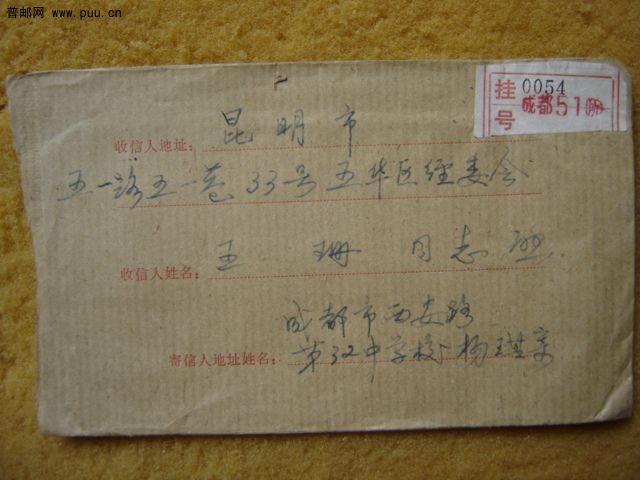 普邮网 www.puu.cn
挂号 0054
成都510
收信人地址: 昆明市
五一路五一巷33号五华区经委会
收信人姓名: 王 珊 同志
成都市西安路
寄信人地址姓名: 第32中学校 杨琪